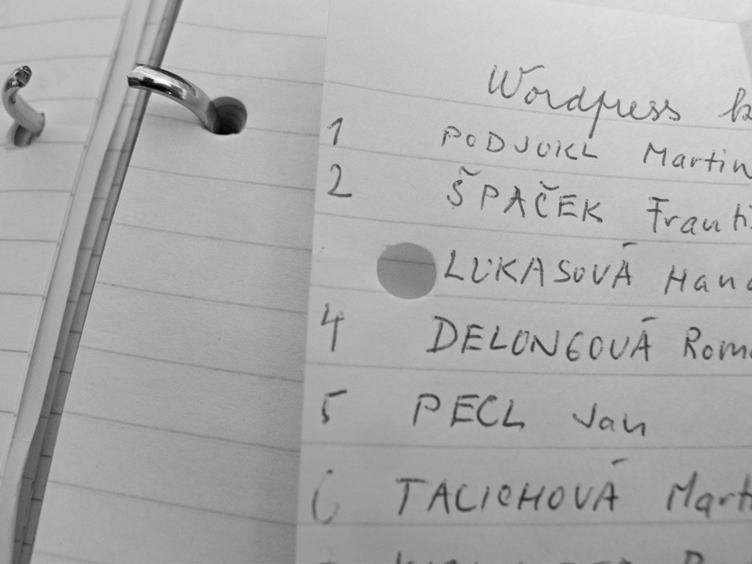 Wordpress
1 PODJUKL Martin
2 ŠPAČEK Franti
LUKASOVÁ Hana
4 DELONGOVÁ Roma
5 PECL Jan
6 TALICHOVÁ Marti